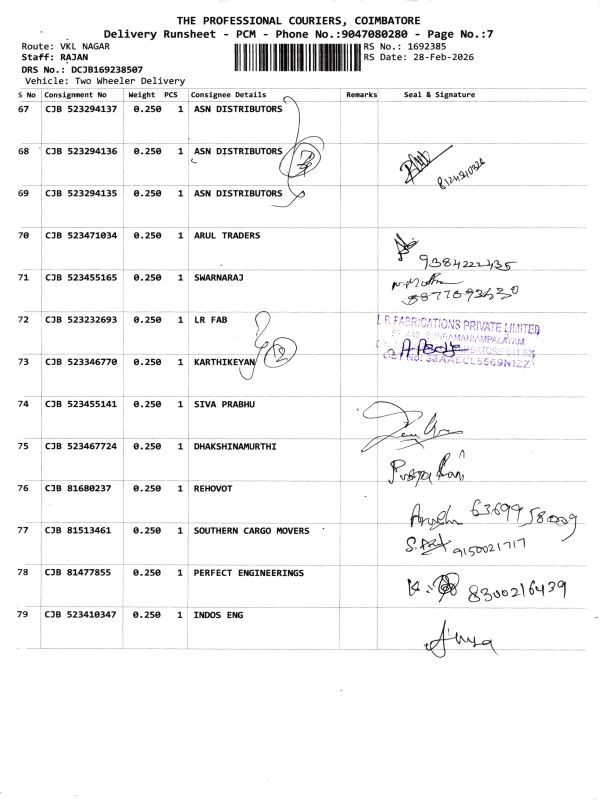 THE PROFESSIONAL COURIERS, COIMBATORE
Delivery Runsheet - PCM - Phone No.:9047080280 - Page No.:7
Route: VKL NAGAR
RS No.: 1692385
Staff: RAJAN
RS Date: 28-Feb-2026
DRS No.: DCJB169238507
Vehicle: Two Wheeler Delivery
S No Consignment No Weight PCS Consignee Details Remarks Seal & Signature
67 CJB 523294137 0.250 1 ASN DISTRIBUTORS
68 CJB 523294136 0.250 1 ASN DISTRIBUTORS
69 CJB 523294135 0.250 1 ASN DISTRIBUTORS
70 CJB 523471034 0.250 1 ARUL TRADERS
9384222435
71 CJB 523455165 0.250 1 SWARNARAJ
72 CJB 523232693 0.250 1 LR FAB
L R FABRICATIONS PRIVATE LIMITED
73 CJB 523346770 0.250 1 KARTHIKEYAN
12
74 CJB 523455141 0.250 1 SIVA PRABHU
75 CJB 523467724 0.250 1 DHAKSHINAMURTHI
76 CJB 81680237 0.250 1 REHOVOT
77 CJB 81513461 0.250 1 SOUTHERN CARGO MOVERS
9150021717
78 CJB 81477855 0.250 1 PERFECT ENGINEERINGS
8300216439
79 CJB 523410347 0.250 1 INDOS ENG